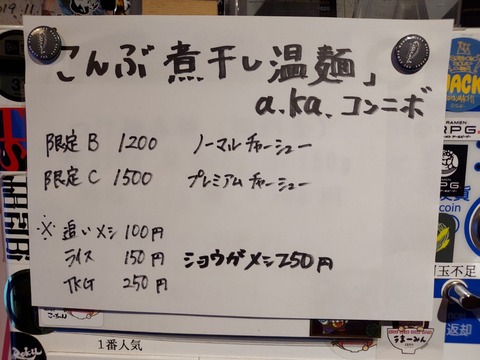 2019.11
「こんぶ煮干し温麺」
a.k.a. コンニボ
限定B 1200 ノーマルチャーシュー
限定C 1500 プレミアムチャーシュー
※追いメシ 100円
ライス 150円 ショウガメシ250円
TKG 250円
JACK
RAMEN
RPG
coin
玉不足
返却
1番人気
らまーみん